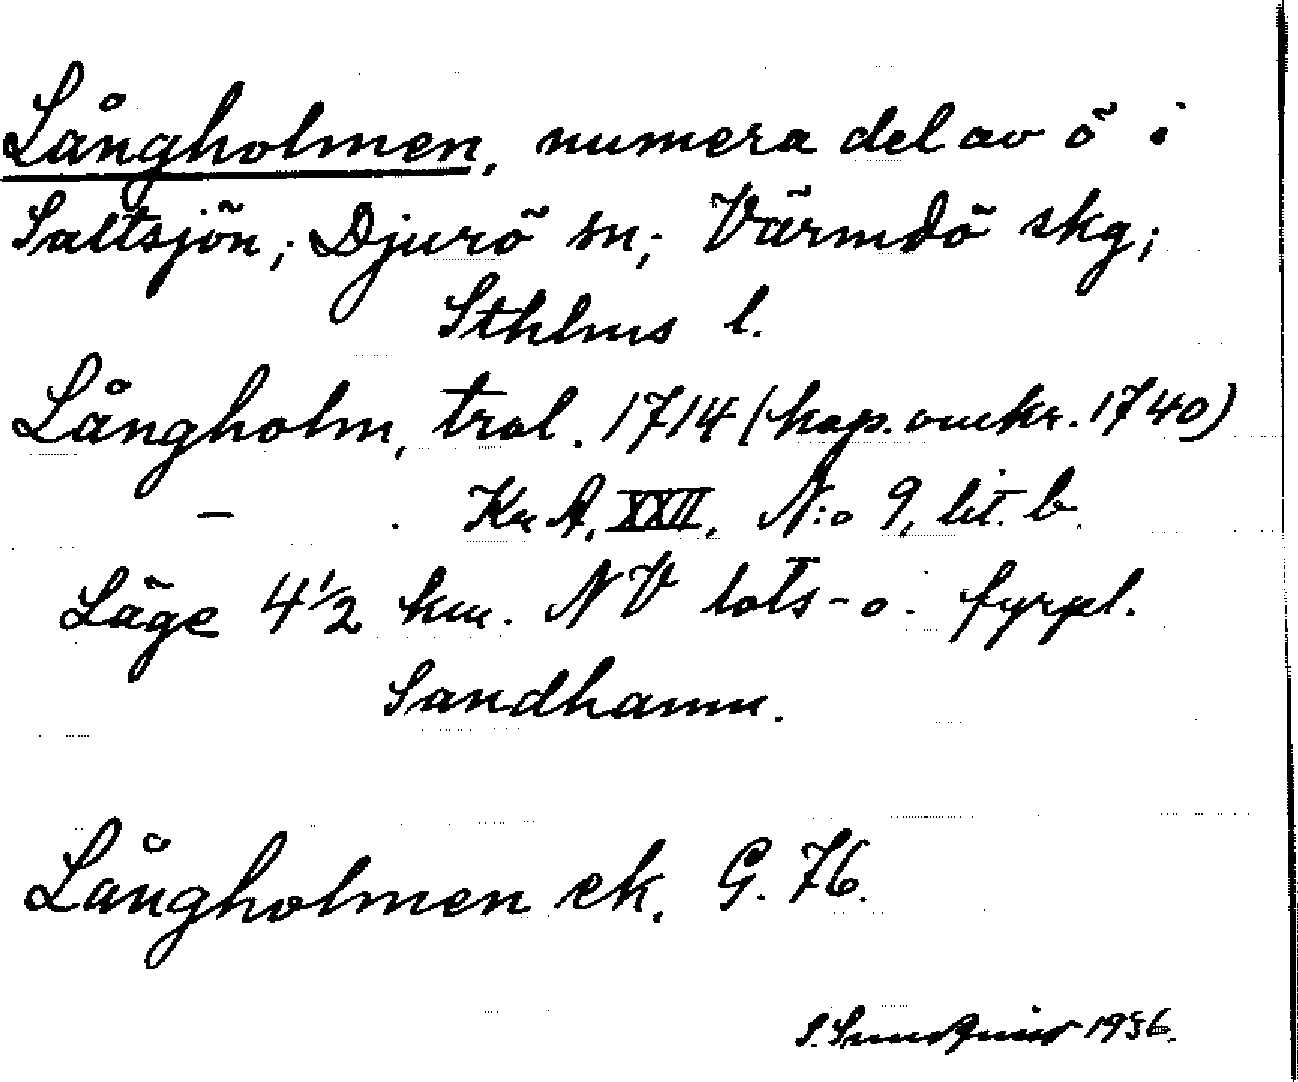 Långholmen, numera del av ö i
Saltsjön; Djurö sn; Värmdö skg;
Sthlms l.
Långholm, trol. 1714 (kop. omkr. 1740)
— Kr A, XXII, N:o 9, lit. b.
Läge 4 1/2 km. NV lots- o. fyrpl.
Sandhamn.
Långholmen ek. G. 76.
S. Sundqvist 1936.